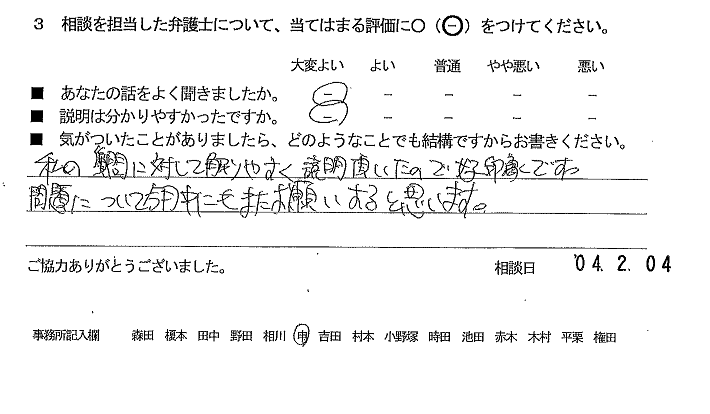 3 相談を担当した弁護士について、当てはまる評価に○(㊀)をつけてください。
大変よい よい 普通 やや悪い 悪い
■ あなたの話をよく聞きましたか。 － － － － －
■ 説明は分かりやすかったですか。 － － － － －
■ 気がついたことがありましたら、どのようなことでも結構ですからお書きください。
私の質問に対して解りやすく説明頂いたので好印象です。
問題について にもまたお願いすると思います。
ご協力ありがとうございました。 相談日 '04.2.04
事務所記入欄 森田 榎本 田中 野田 相川 申 吉田 村本 小野塚 時田 池田 赤木 木村 平栗 権田